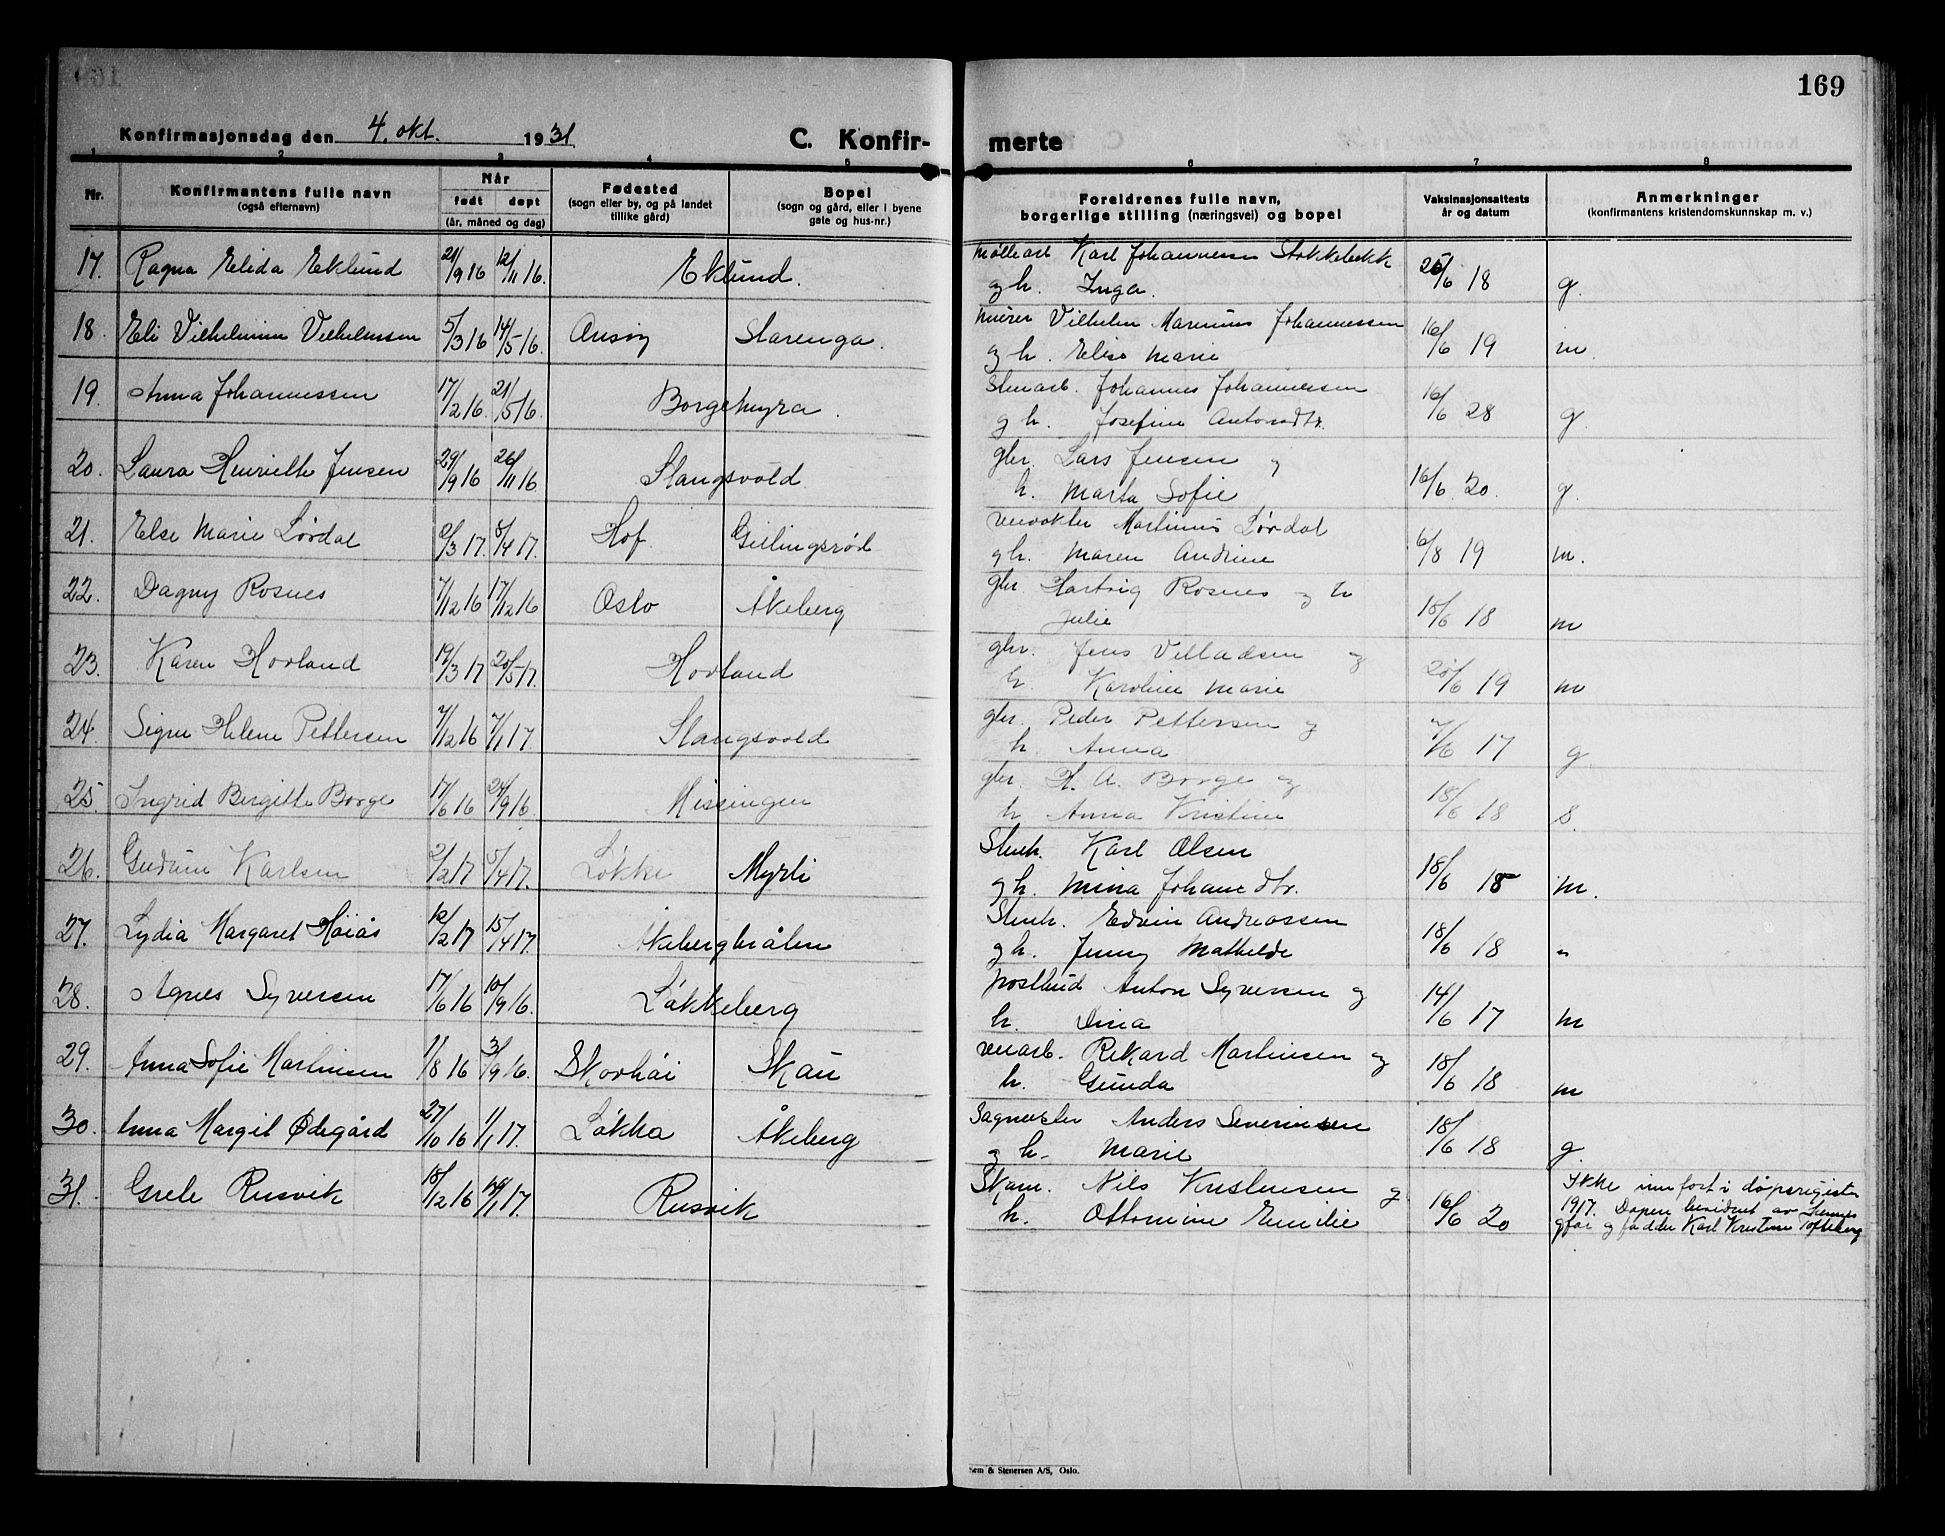 169
Konfirmasjonsdag den 4. okt. 1931 C. Konfir- merte
1 2 3 4 5 6 7 8
Nr. Konfirmantens fulle navn (også efternavn) Når født døpt (år, måned og dag) Fødested (sogn eller by, og på landet tillike gård) Bopel (sogn og gård, eller i byene gate og hus-nr.) Foreldrenes fulle navn, borgerlige stilling (næringsvei) og bopel Vaksinasjonsattests år og datum Anmerkninger (konfirmantens kristendomskunnskap m. v.)
17. Ragna Elida Eklund 21/9 16 12/11 16. Eklund. Møllearb Karl Johannesen Stokkebekk 25/6 18 g.
og h. Inga.
18. Eli Vilhelmine Vilhelmsen 5/3 16 14/5 16. Onsøy Slarenga. Murer Vilhelm Marinius Johannessen 16/6 19 m.
og h. Elise Marie
19. Anna Johannessen 17/2 16. 21/5 16. Borgemyra. Stenarb. Johannes Johannessen 16/6 28 g.
og h. Josefine Antonsdtr.
20. Laura Henriette Jensen 29/9 16 26/11 16. Slangsvold gbr. Lars Jensen og 16/6 20. g.
h. Marta Sofie
21. Else Marie Lørdal 2/3 17. 8/4 17. Hof. Gillingsrød Martinus Lørdal 6/8 19 m.
g h. Maren Andrine
22. Dagny Rosnes 7/12 16 17/12 16 Oslo Åkeberg gbr. Hartvig Rosnes og h 18/6 18 m
Julie
23. Karen Hovland 19/3 17 20/5 17. Hovland gbr. Jens Villadsen og 20/6 19 m
h. Karoline Marie
24. Signe Helene Pettersen 7/12 16 7/1 17. Slangsvold gbr. Peder Pettersen og 7/6 17 g
h. Anna
25 Ingrid Birgitte Borge 17/6 16 24/9 16. Missingen gbr. H. A. Borge og 18/6 18 s.
h Anna Kristine
26. Gudrun Karlsen 2/2 17 5/4 17. Løkke Myrli Stenh. Karl Olsen 18/6 18 m.
g h. Mina Johanedtr.
27. Lydia Margaret Høiås 12/2 17 15/4 17. Åkebergbråten Stenh. Edvin Andreassen 18/6 18 "
g h. Jenny Mathilde
28. Agnes Syversen 17/6 16 10/9 16. Løkkeberg postbud Anton Syversen og 14/6 17 m
h. Dina
29. Anna Sofie Martinsen 1/8 16 3/9 16. Skovhøi Skau Rikard Martinsen og 18/6 18 m
h. Gunda
30. Anna Margit Ødegård 27/10 16 1/1 17. Løkka Åkeberg Sagmester Anders Severinsen 18/6 18 g.
og h. Marie
31. Grete Rusvik 18/12 16 1/1 17. Rusvik Nils Kristensen og 16/6 20 Ikke innført i dåpsregister
h. Ottomine Emilie 1917. Dåpen bevidnet av
gfar og fadder Karl Kristian Tofteberg
Sem & Stenersen A/S, Oslo.